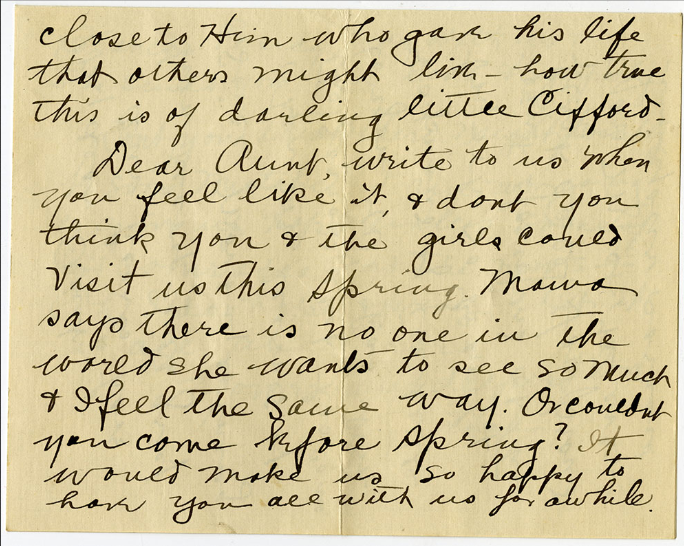 close to Him who gave his life
that others might live - how true
this is of darling little Cifford -
Dear Aunt, write to us when
you feel like it, & dont you
think you & the girls could
Visit us this Spring. Mama
says there is no one in the
world she wants to see so much
& I feel the same way. Or couldnt
you come before spring? It
would make us so happy to
have you all with us for awhile.